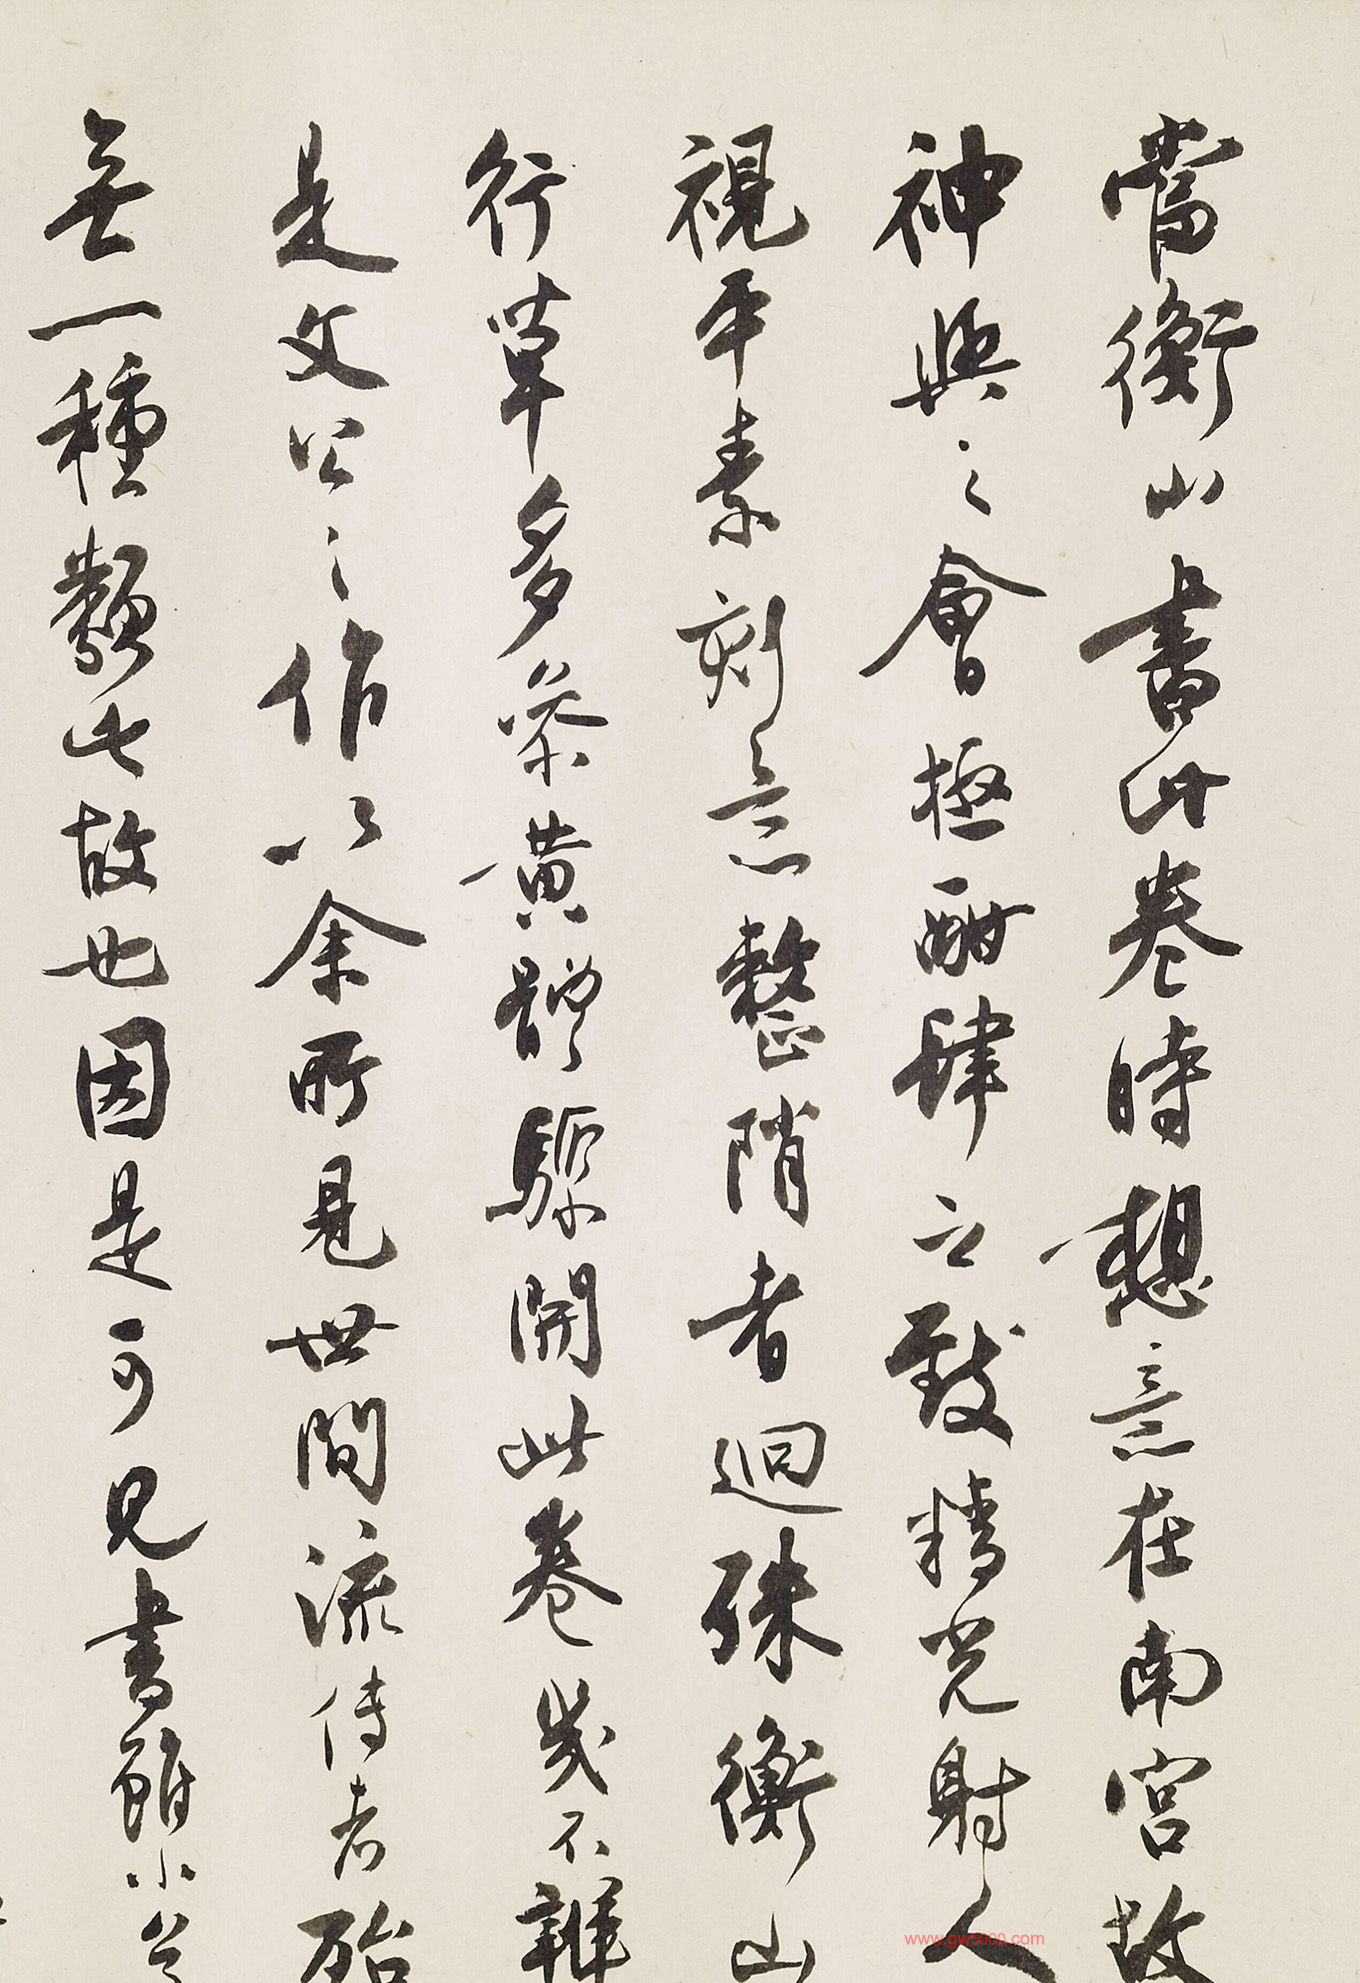 當衡山書此卷時想意在南宮故
神與之會極酣肆之致精光射人
視平素刻意整陗者迥殊衡山
行草多蔡黃體驟開此卷幾不辨
是文公之作以余所見世間流傳者殆
無一種類此故也因是可見書雖小
www.gw5000.com